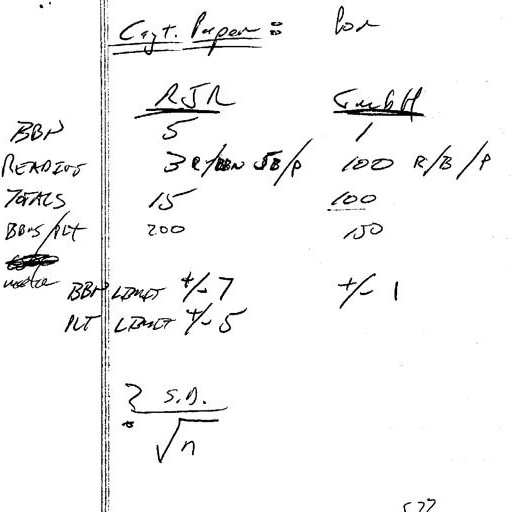 Cigt. Paper : Por
RJR GmbH
BBN 5 1
READINGS 3 R/BBN 5B/P 100 R/B/P
TOTALS 15 100
BBNS/PLT 200 150
BBN LIMIT +/- 7 +/- 1
PLT LIMIT +/- 5
? S.D.
√n